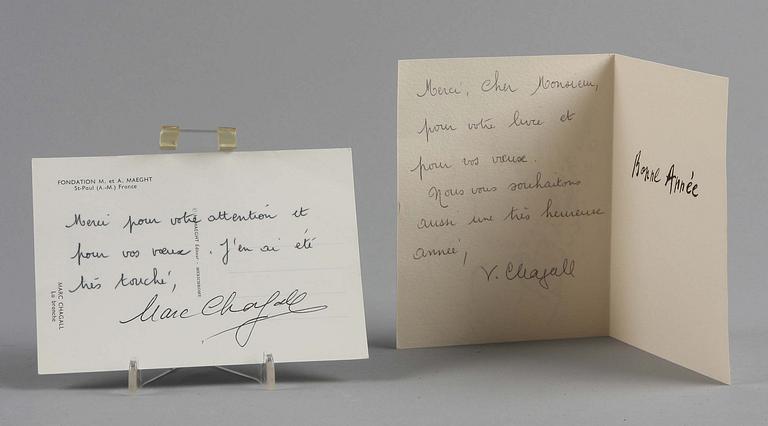 FONDATION M. et A. MAEGHT
St-Paul (A.-M.) France
Merci pour votre attention et
pour vos vœux. J'en ai été
très touché,
Marc Chagall
MARC CHAGALL
La branche
MAEGHT Éditeur
Merci, cher Monsieur,
pour votre livre et
pour vos vœux.
Nous vous souhaitons
aussi une très heureuse
année,
V. Chagall
Bonne Année